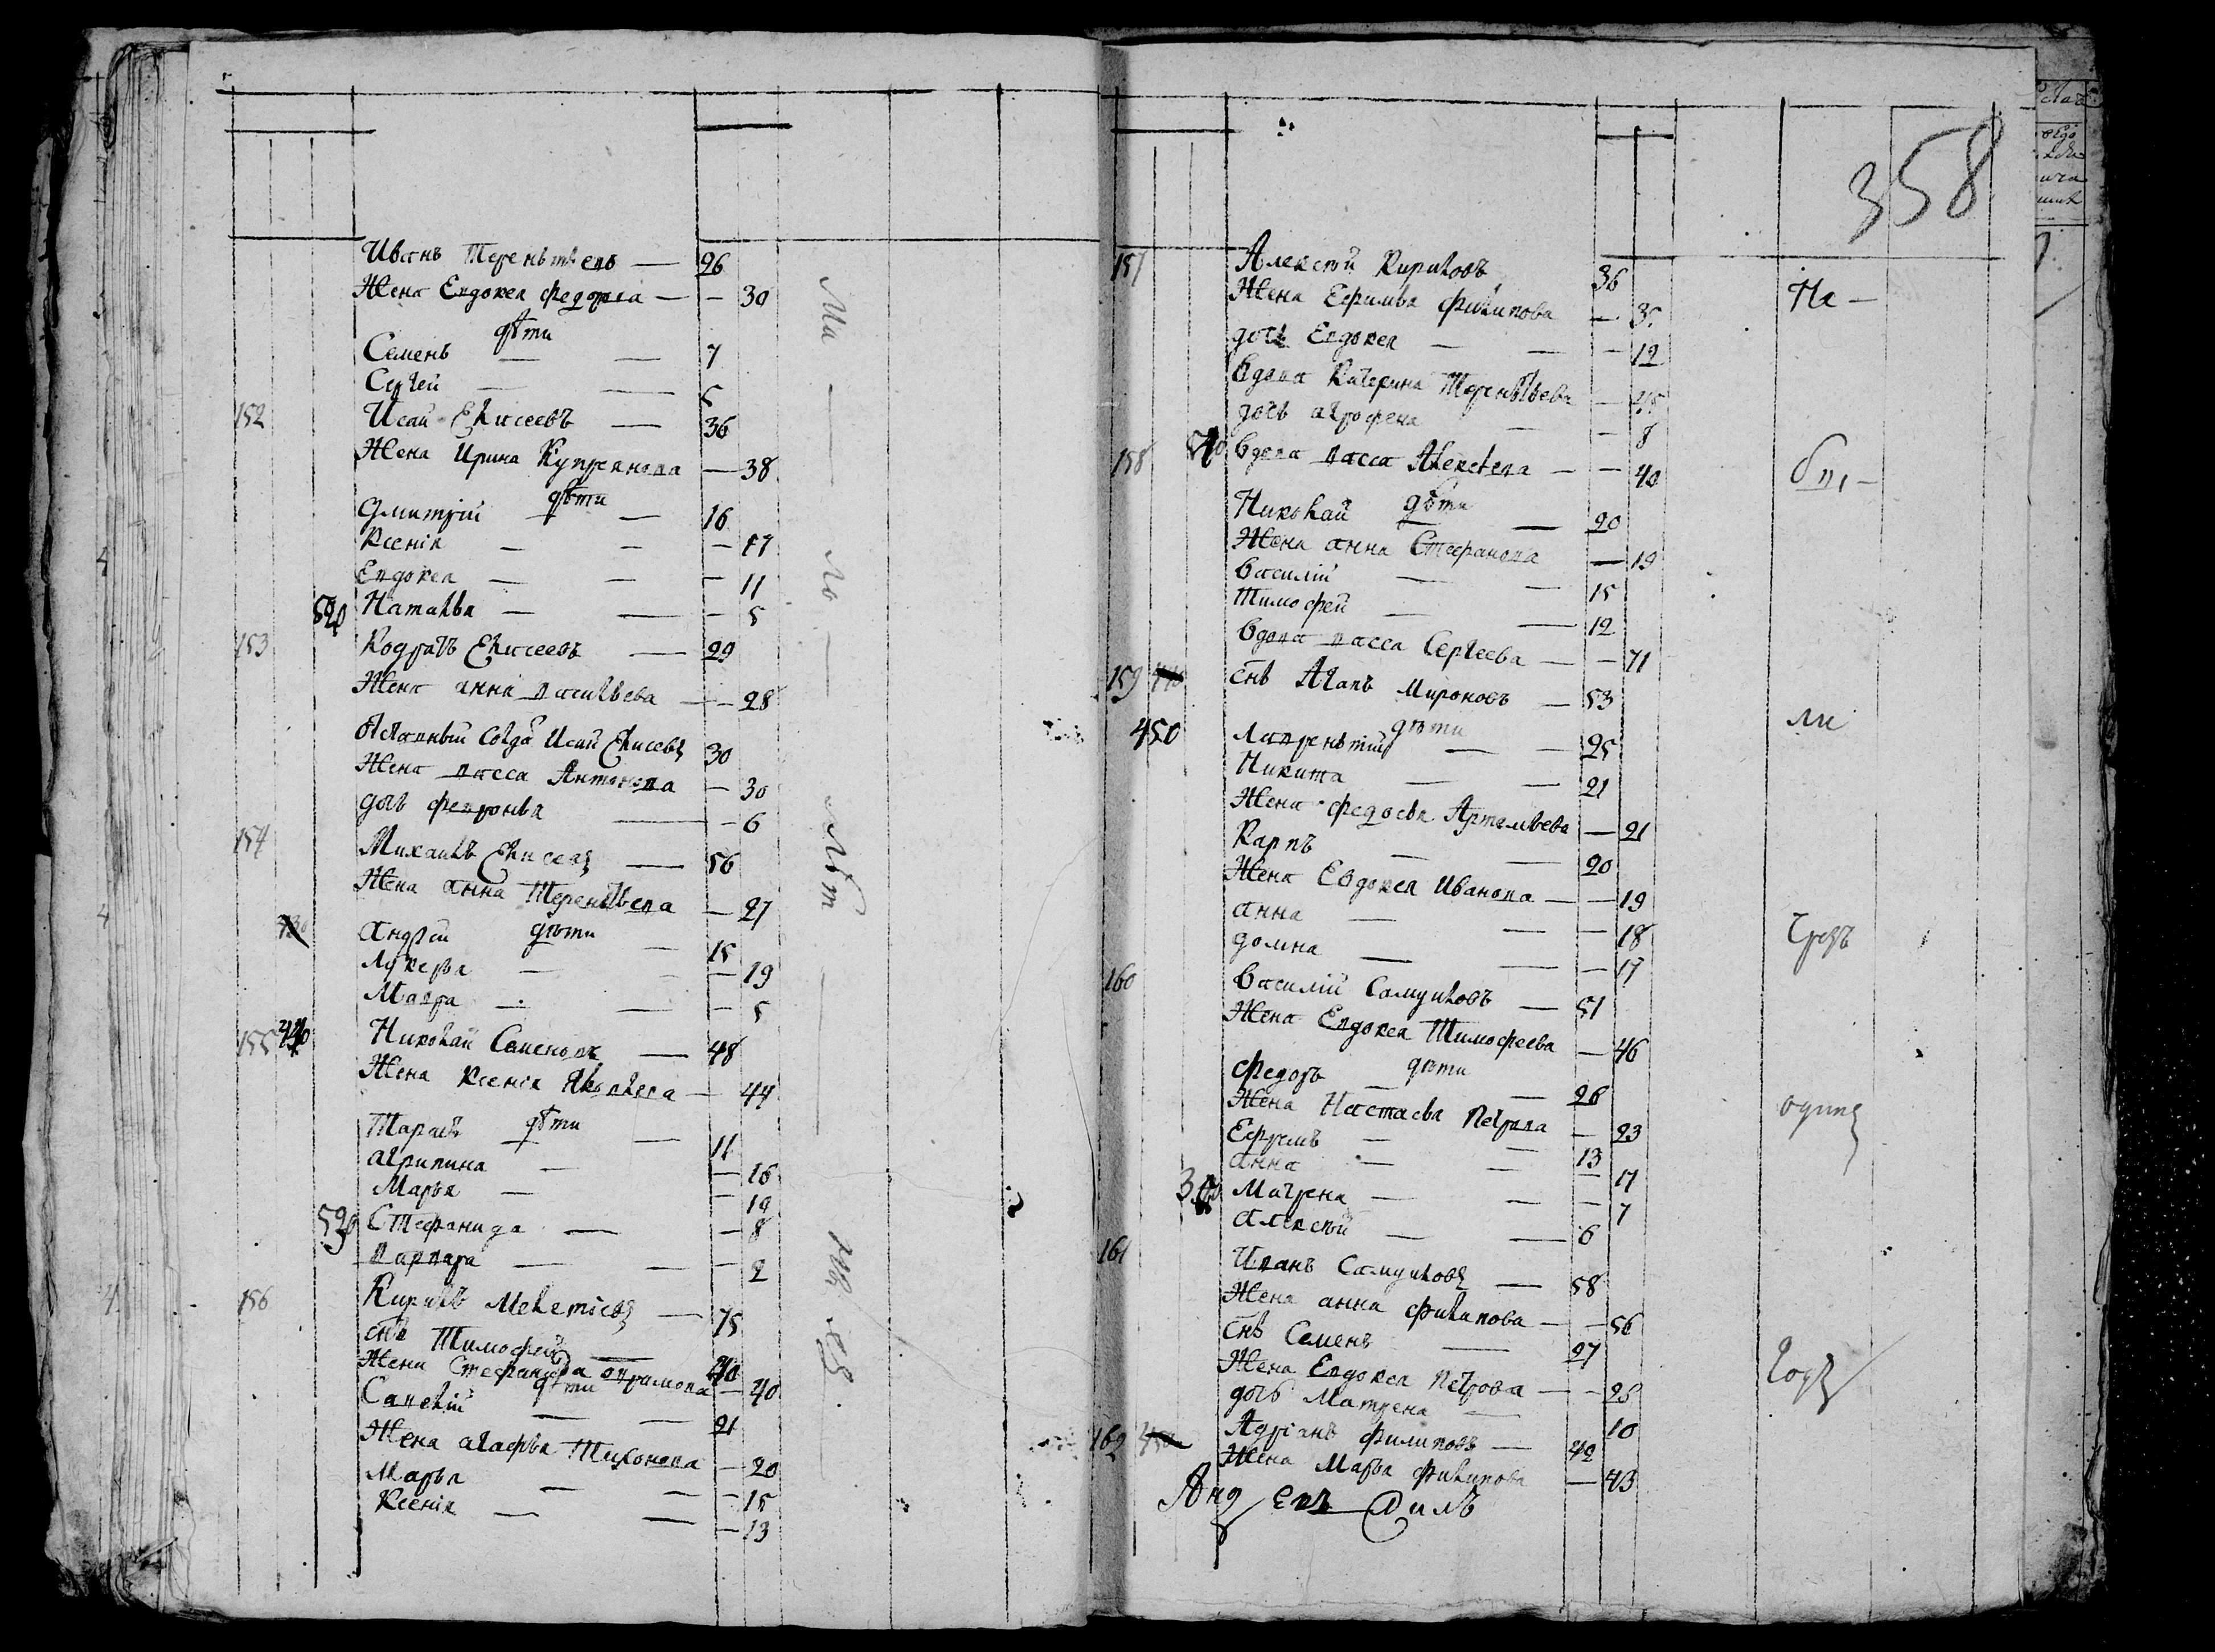 358
Иванъ Терентьевъ — 26
Жена Евдокея Федорова — — 30
дѣти
Семенъ — — 7
Сергей — — 5
152 Исай Елисеевъ — 36
Жена Ирина Купреянова — 38
дѣти
Дмитрій — — 16
Ксенія — — — 17
Евдокея — — — 11
520 Наталья — — — 5
153 Кодратъ Елисеевъ — 29
Жена анна васильева — — 28
Исай Елисевъ 30
Жена васса Антонова — 30
дочь февронья — — 6
154 Михаилъ Елисеевъ — 56
Жена анна Терентьева — 27
дѣти
андрей — 15
Лукерья — — — 19
Мавра — — — 5
155 440 Николай Семеновъ — 48
Жена Ксенія Яковлева — 44
дѣти
Тарасъ — — 11
агрипина — — 16
Марья — — 12
530 Стефанида — — 8
варвара — — — 2
156 Кирилъ Мелетіевъ — 75
снъ Тимофей — 40
Жена Стефанида — 40
дѣти
Савелій — — 21
Жена агафья Тихонова — 20
Марья — — — 15
Ксенія — — — 13
Ми — ло — лѣт —
157 Алексѣй Кириловъ 36
Жена Ефимья Филипова — 3
дочь Евдокея — — — 12
вдова Катерина Терентьева —
дочь агрофена — — 8
158 540 вдова васса Алексѣева — — 40
дѣти
Николай — — 20
Жена анна Стефанова — 19
василій — — 15
Тимофей — — 12
вдова васса Сергеева — — 71
159 снъ Агапъ Мироновъ — 53
дѣти
450 Лаврентій — — 25
Никита — — 21
Жена федосья Артемьева — 21
Карпъ — — 20
Жена Евдокея Иванова — — 19
анна — — — 18
домна — — — 17
160 василій Самуиловъ — 51
Жена Евдокея Тимофеева — 46
дѣти
Федоръ — — 26
Жена Настасья Петрова — 23
Ефремъ — — 13
анна — — — 17
Матрена — — — 7
алексѣй — — 6
161 Иванъ Самуиловъ — 58
Жена анна филипова — — 56
снъ Семенъ — 27
Жена Евдокея Петрова — — 25
дочь Матрена — 10
162 Адріанъ Филиповъ — 42
Жена Марья Филипова — 43
На —
ли
Чрезъ
одинъ
годъ